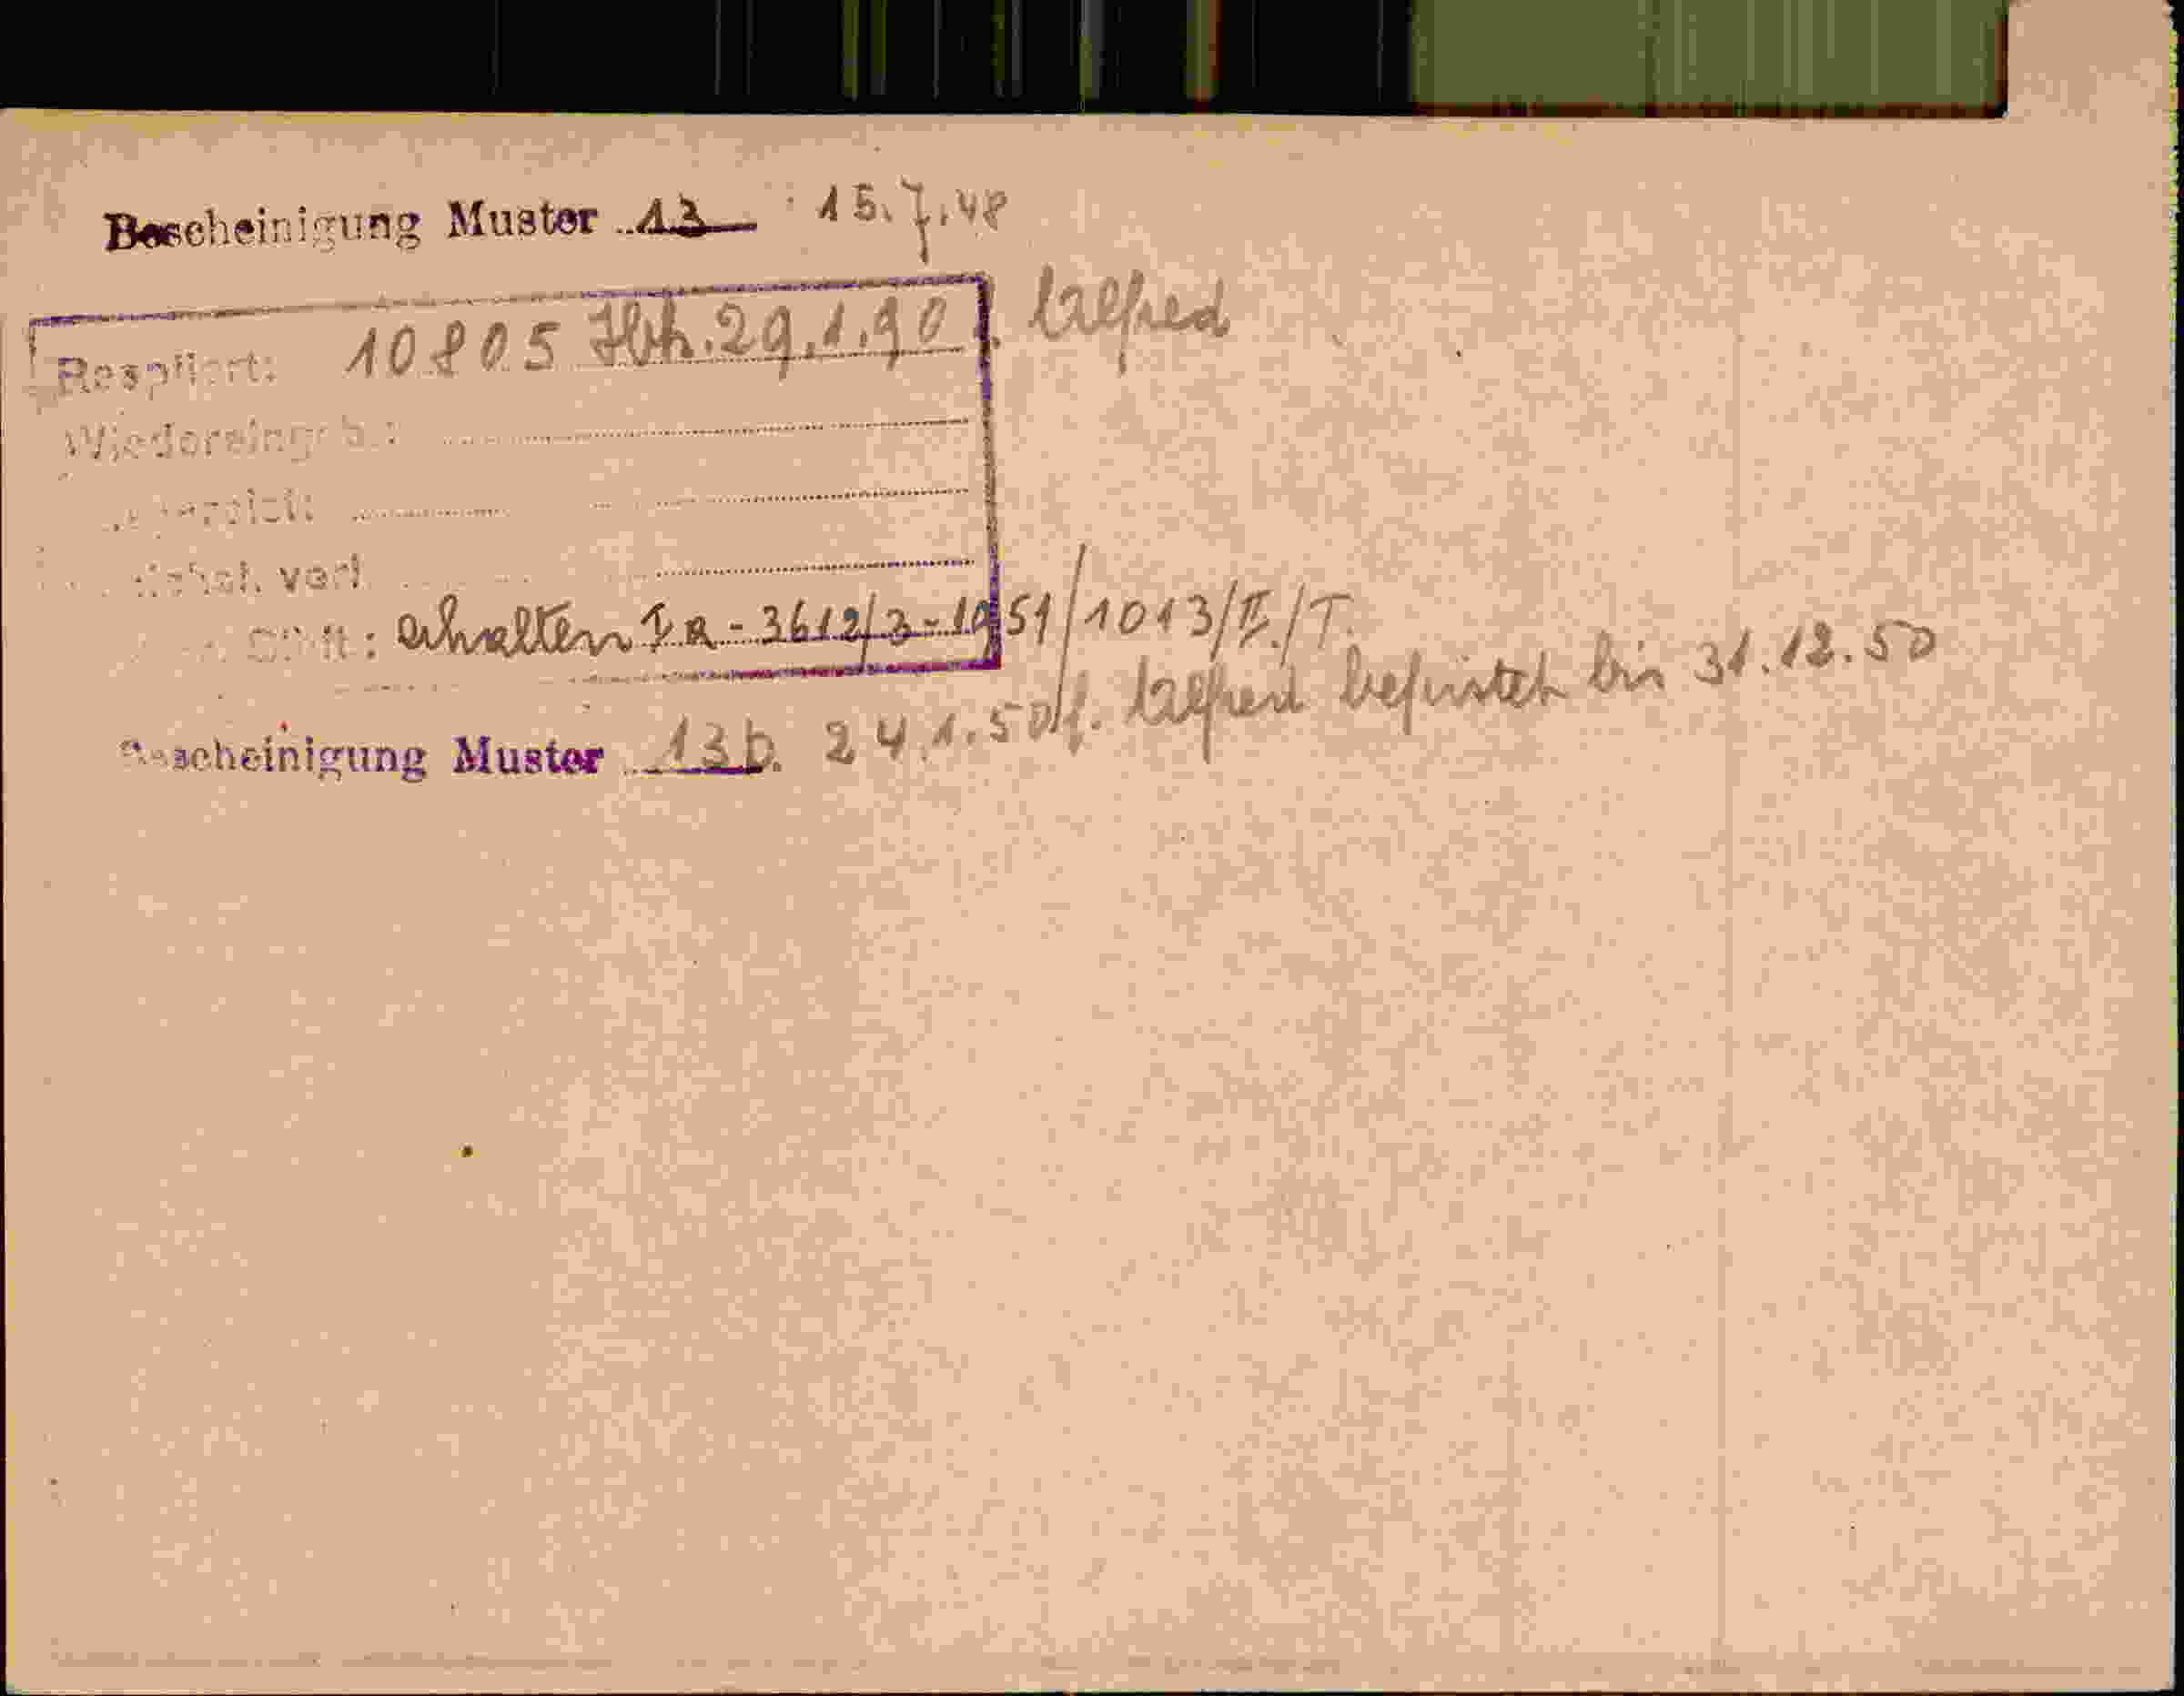 Bescheinigung Muster 13 15.7.48
Respiiert: 10805 Hbh. 29.1.90 f. Alfred
Wiedereingeb.:
verl.
erhalten Ia - 3612/3 - 1951/1013/II./T.
Bescheinigung Muster 13b. 24.1.50 f. Alfred befristet bis 31.12.50